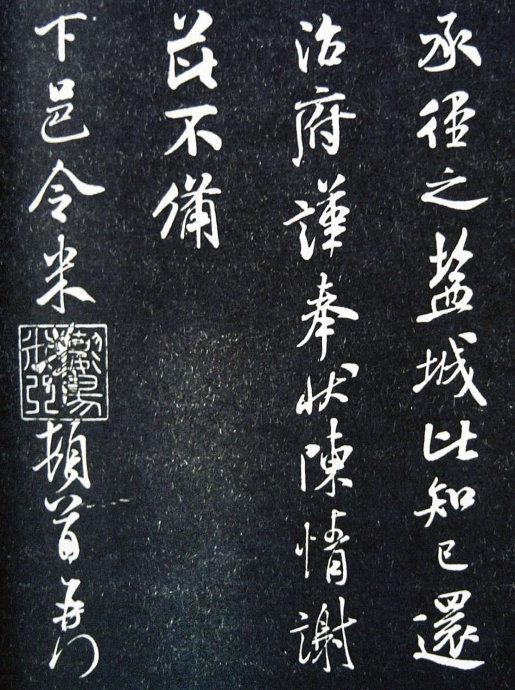 承徑之塩城比知已還
治府謹奉狀陳情謝
芘不備
下邑令米黻頓首再拜